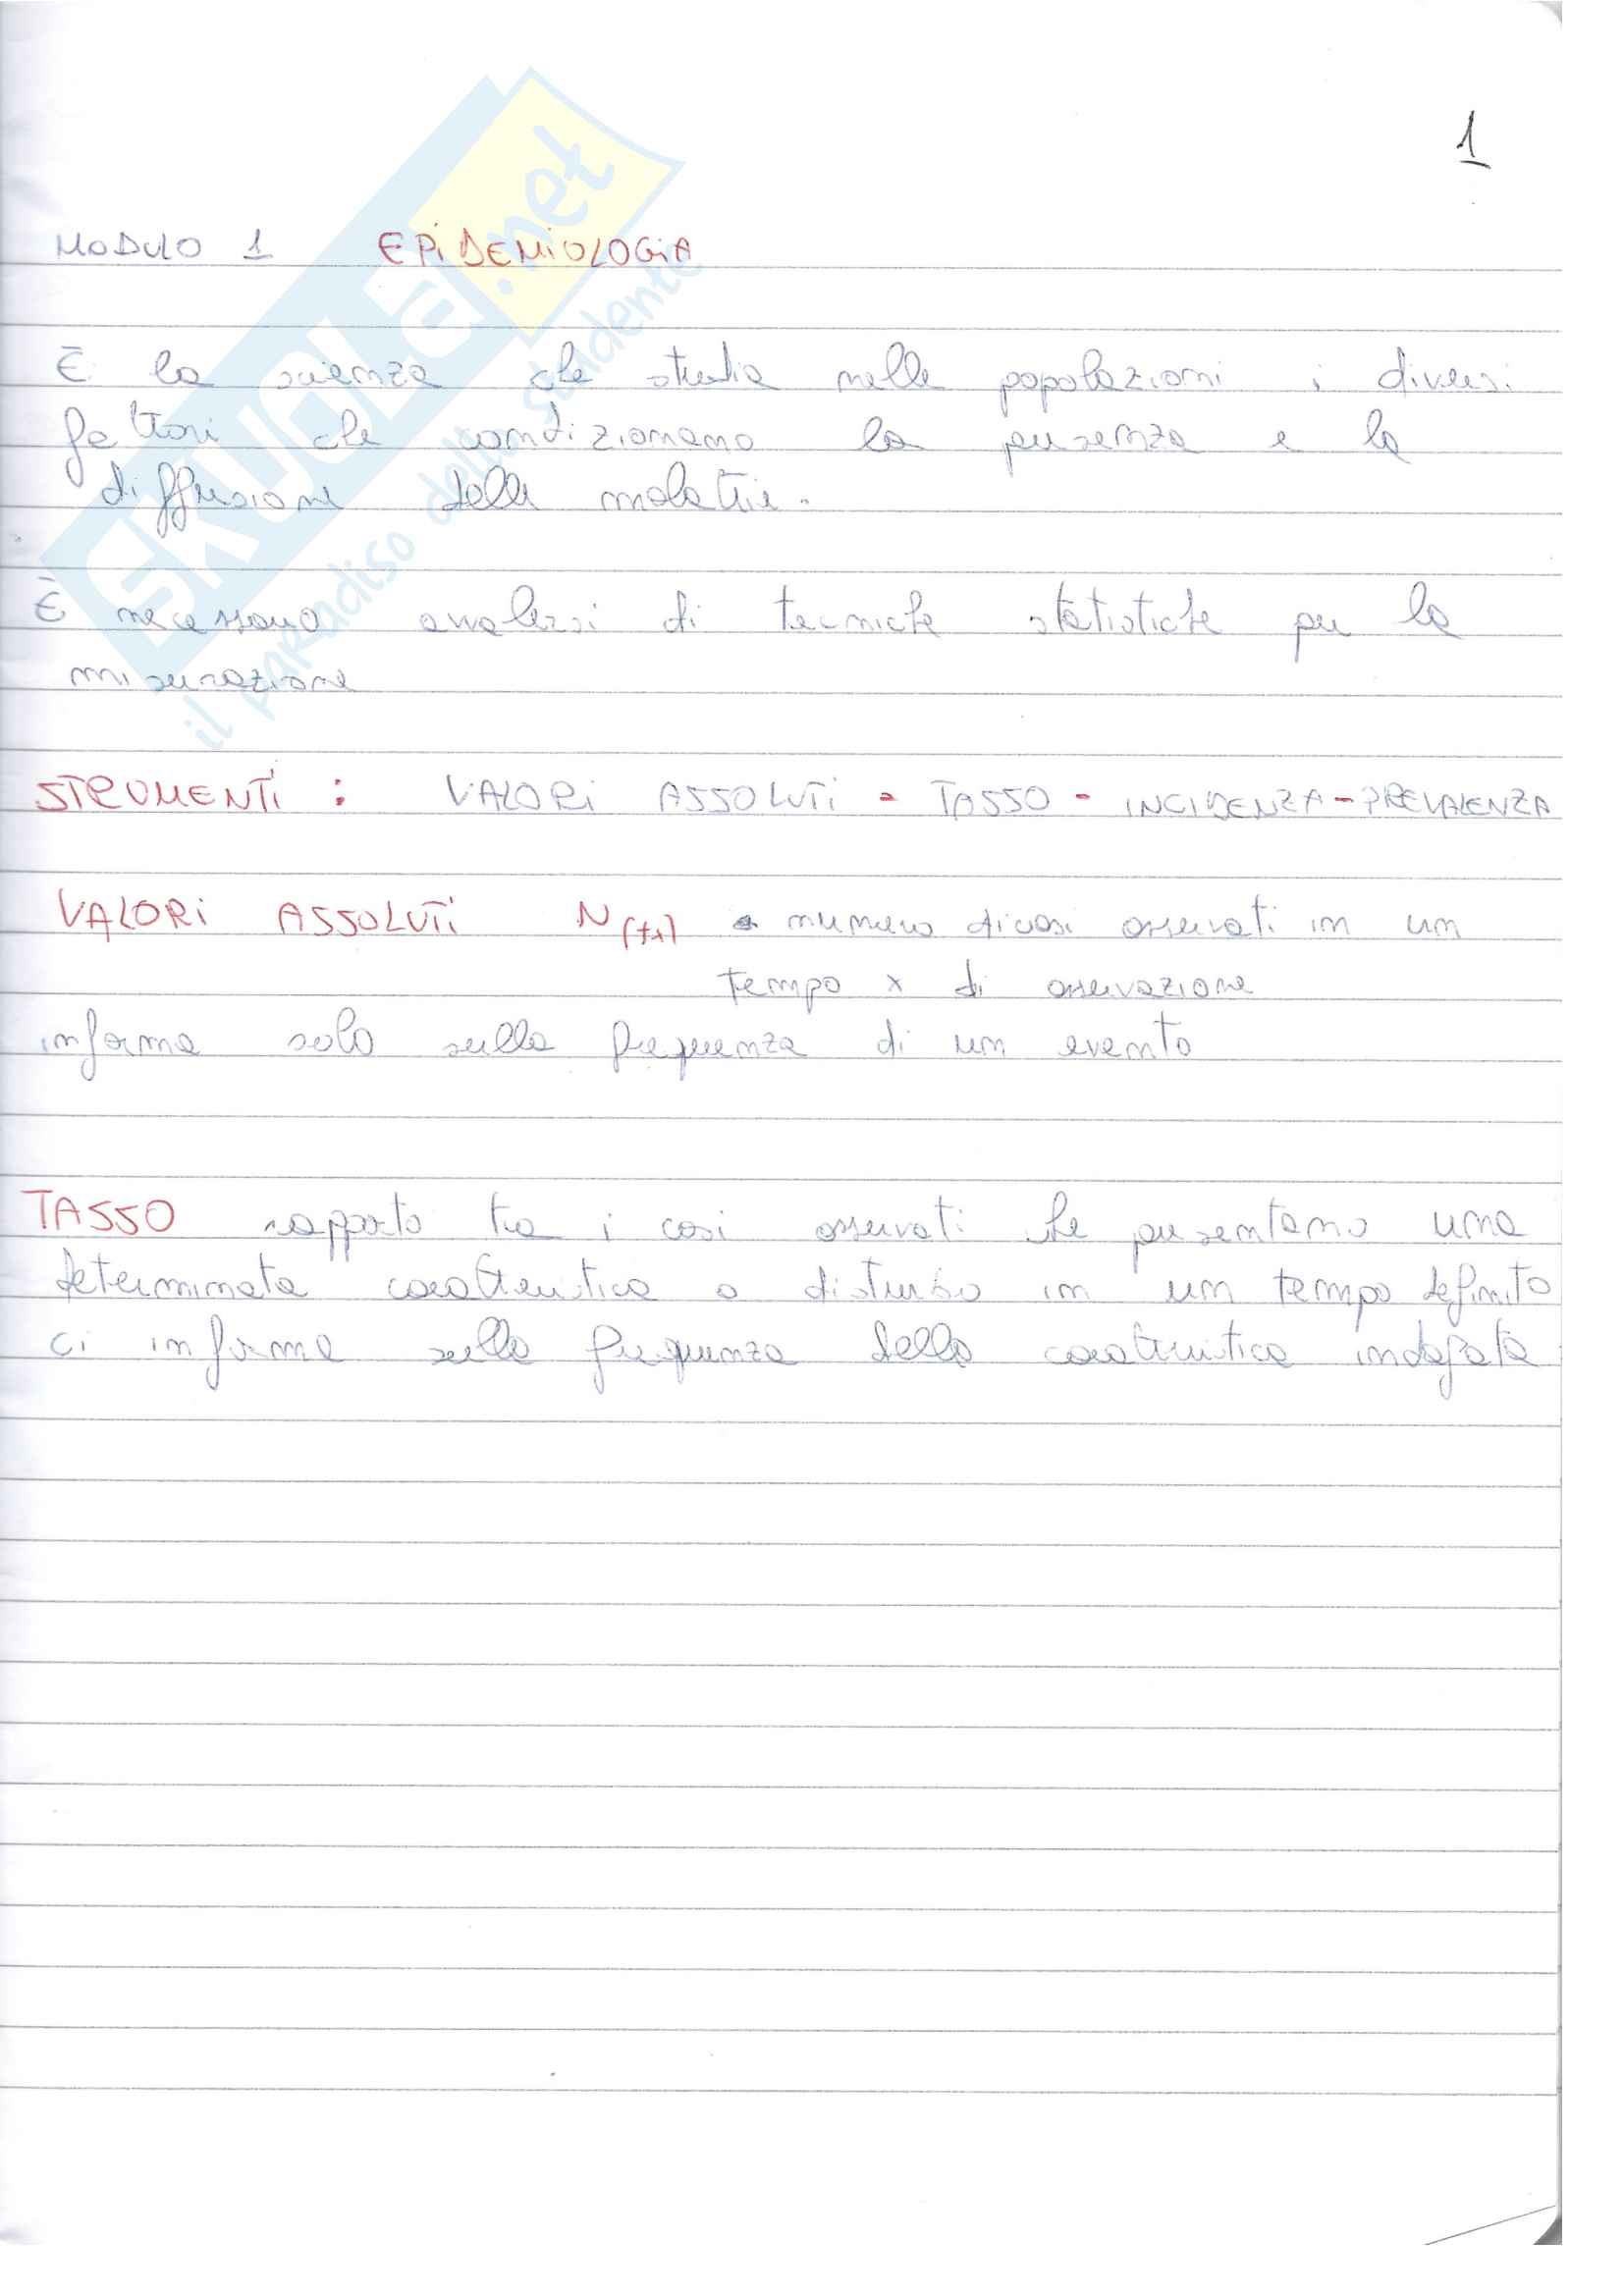 1
MODULO 1 EPIDEMIOLOGIA
È la scienza che studia nelle popolazioni i diversi
fattori che condizionano la presenza e la
diffusione delle malattie.
È necessario avvalersi di tecniche statistiche per la
misurazione
STRUMENTI : VALORI ASSOLUTI - TASSO - INCIDENZA - PREVALENZA
VALORI ASSOLUTI N(tx) numero di casi osservati in un
tempo x di osservazione
informa solo sulla frequenza di un evento
TASSO rapporto tra i casi osservati che presentano una
determinata caratteristica o disturbo in un tempo definito
ci informa sulla frequenza della caratteristica indagata
SKUOLA.net
il paradiso dello studente